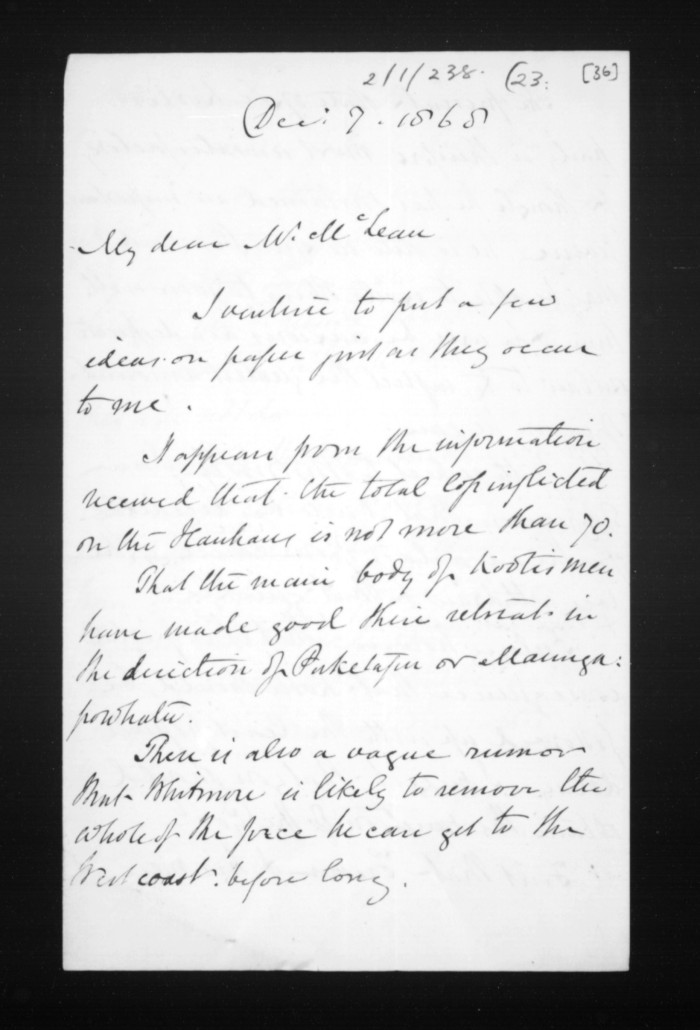 2/1/238. (23. [36]
Dec. 7. 1868
My dear Mr. McLean
I venture to put a few
ideas on paper just as they occur
to me.
It appears from the information
received that the total loss inflicted
on the Hauhaus is not more than 70.
That the main body of Kootis men
have made good their retreat in
the direction of Puketapu or Maunga:
powhatu.
There is also a vague rumor
that Whitmore is likely to remove the
whole of the force he can get to the
West coast. before long.